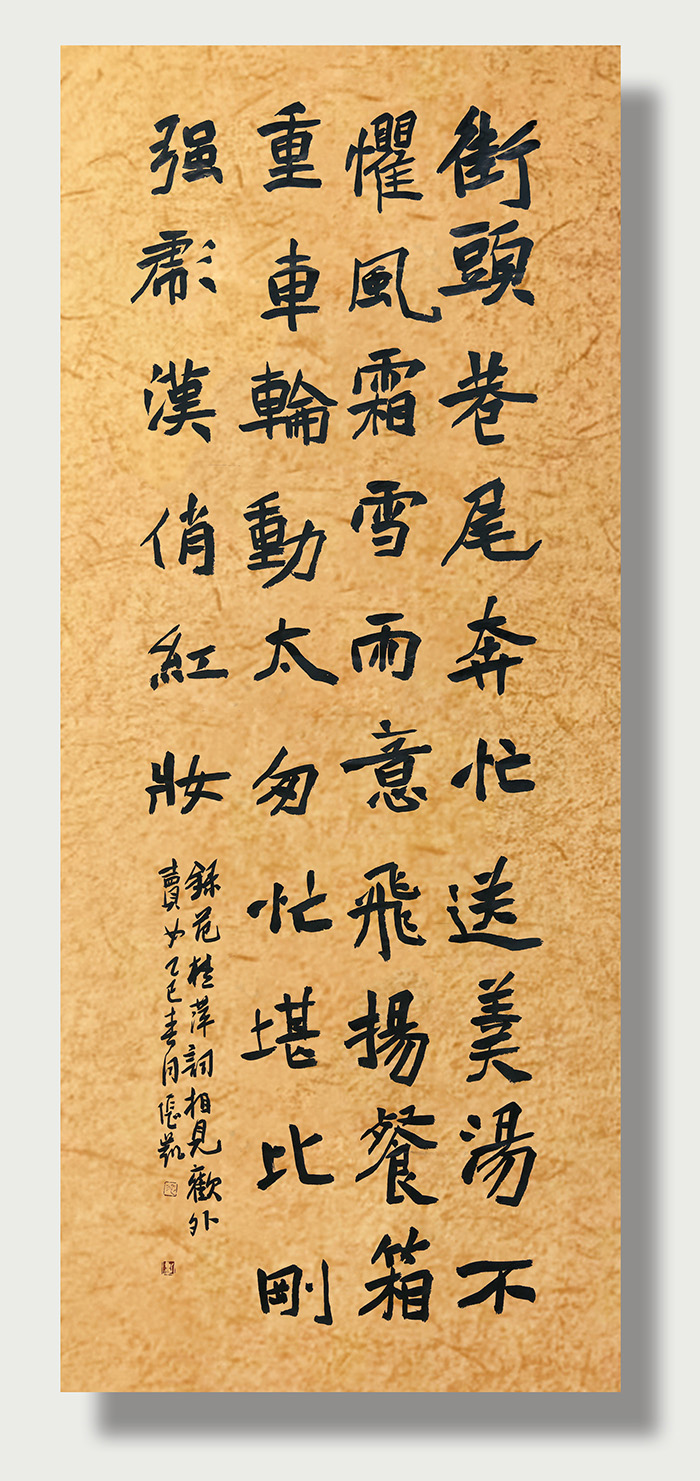 街頭巷尾奔忙送美湯不
懼風霜雪雨意飛揚餐箱
重車輪動太匆忙堪比剛
强彪漢俏紅妝
錄范桂萍詞相見歡外
賣女乙巳春月張凱